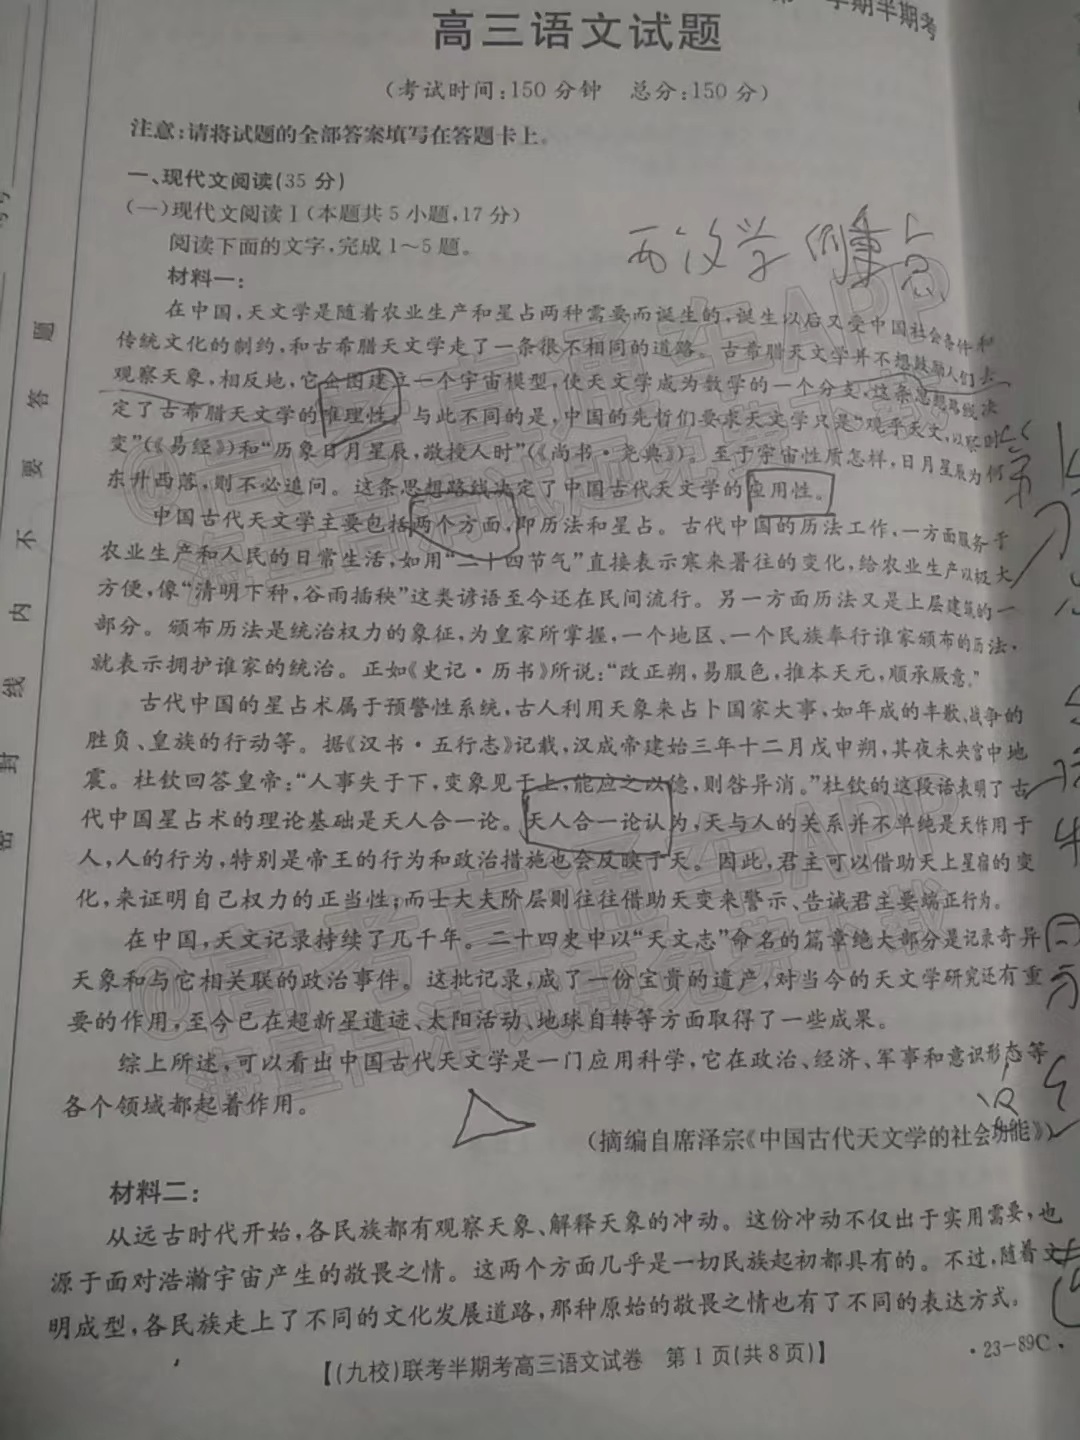 学期半期考
高三语文试题
(考试时间:150分钟 总分:150分)
注意:请将试题的全部答案填写在答题卡上。
一、现代文阅读(35分)
(一)现代文阅读Ⅰ(本题共5小题,17分)
阅读下面的文字,完成1~5题。
材料一:
在中国,天文学是随着农业生产和星占两种需要而诞生的,诞生以后又受中国社会条件和
传统文化的制约,和古希腊天文学走了一条很不相同的道路。古希腊天文学并不想鼓励人们去
观察天象,相反地,它企图建立一个宇宙模型,使天文学成为数学的一个分支,这条思想路线决
定了古希腊天文学的推理性。与此不同的是,中国的先哲们要求天文学只是“观乎天文,以察时
变”(《易经》)和“历象日月星辰,敬授人时”(《尚书·尧典》)。至于宇宙性质怎样,日月星辰为何
东升西落,则不必追问。这条思想路线决定了中国古代天文学的应用性。
中国古代天文学主要包括两个方面,即历法和星占。古代中国的历法工作,一方面服务于
农业生产和人民的日常生活,如用“二十四节气”直接表示寒来暑往的变化,给农业生产以极大
方便,像“清明下种,谷雨插秧”这类谚语至今还在民间流行。另一方面历法又是上层建筑的一
部分。颁布历法是统治权力的象征,为皇家所掌握,一个地区、一个民族奉行谁家颁布的历法,
就表示拥护谁家的统治。正如《史记·历书》所说:“改正朔,易服色,推本天元,顺承厥意。”
古代中国的星占术属于预警性系统,古人利用天象来占卜国家大事,如年成的丰歉、战争的
胜负、皇族的行动等。据《汉书·五行志》记载,汉成帝建始三年十二月戊申朔,其夜未央宫中地
震。杜钦回答皇帝:“人事失于下,变象见于上,能应之以德,则咎异消。”杜钦的这段话表明了古
代中国星占术的理论基础是天人合一论。天人合一论认为,天与人的关系并不单纯是天作用于
人,人的行为,特别是帝王的行为和政治措施也会反映于天。因此,君主可以借助天上星宿的变
化,来证明自己权力的正当性;而士大夫阶层则往往借助天变来警示、告诫君主要端正行为。
在中国,天文记录持续了几千年。二十四史中以“天文志”命名的篇章绝大部分是记录奇异
天象和与它相关联的政治事件。这批记录,成了一份宝贵的遗产,对当今的天文学研究还有重
要的作用,至今已在超新星遗迹、太阳活动、地球自转等方面取得了一些成果。
综上所述,可以看出中国古代天文学是一门应用科学,它在政治、经济、军事和意识形态等
各个领域都起着作用。
(摘编自席泽宗《中国古代天文学的社会功能》)
材料二:
从远古时代开始,各民族都有观察天象、解释天象的冲动。这份冲动不仅出于实用需要,也
源于面对浩瀚宇宙产生的敬畏之情。这两个方面几乎是一切民族起初都具有的。不过,随着文
明成型,各民族走上了不同的文化发展道路,那种原始的敬畏之情也有了不同的表达方式。
【(九校)联考半期考高三语文试卷 第1页(共8页)】
·23-89C·
密封线内不要答题